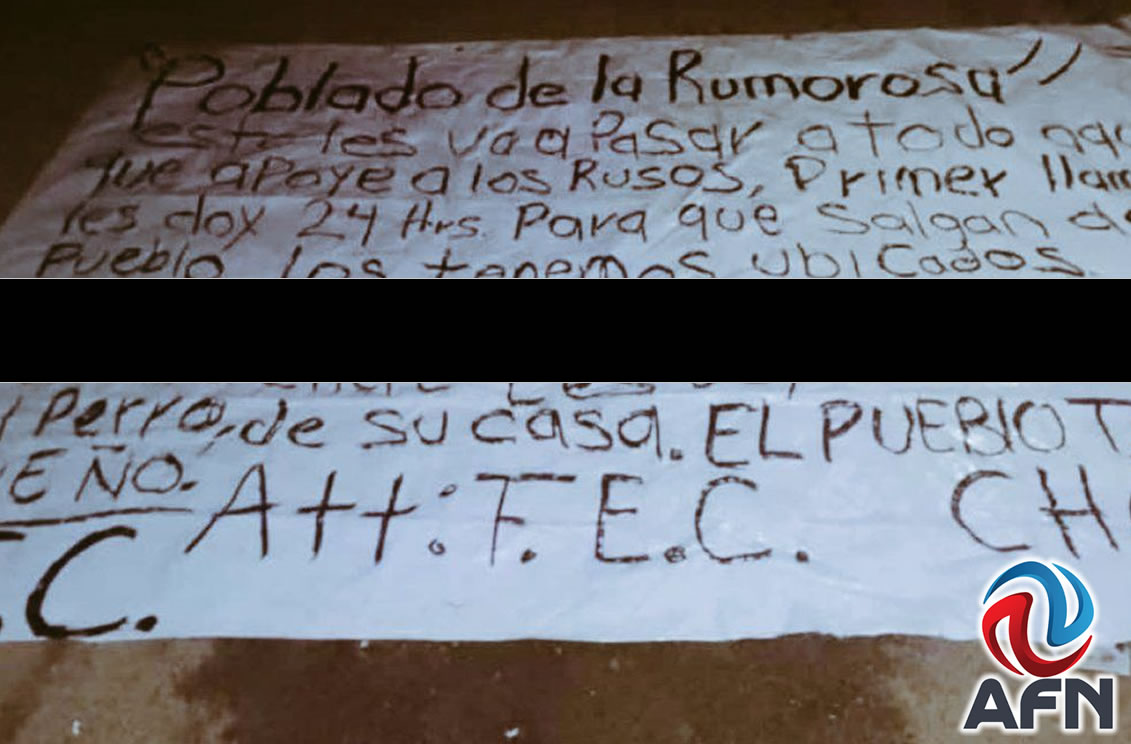 "Poblado de la Rumorosa"
esto les va a Pasar a todo
que apoye a los Rusos, Primer
les doy 24 Hrs. Para que Salgan
Pueblo los tenemos ubicados
Perro, de su casa. EL PUEBlO T
EÑO. Att: F. E.C. CH
.C.
AFN